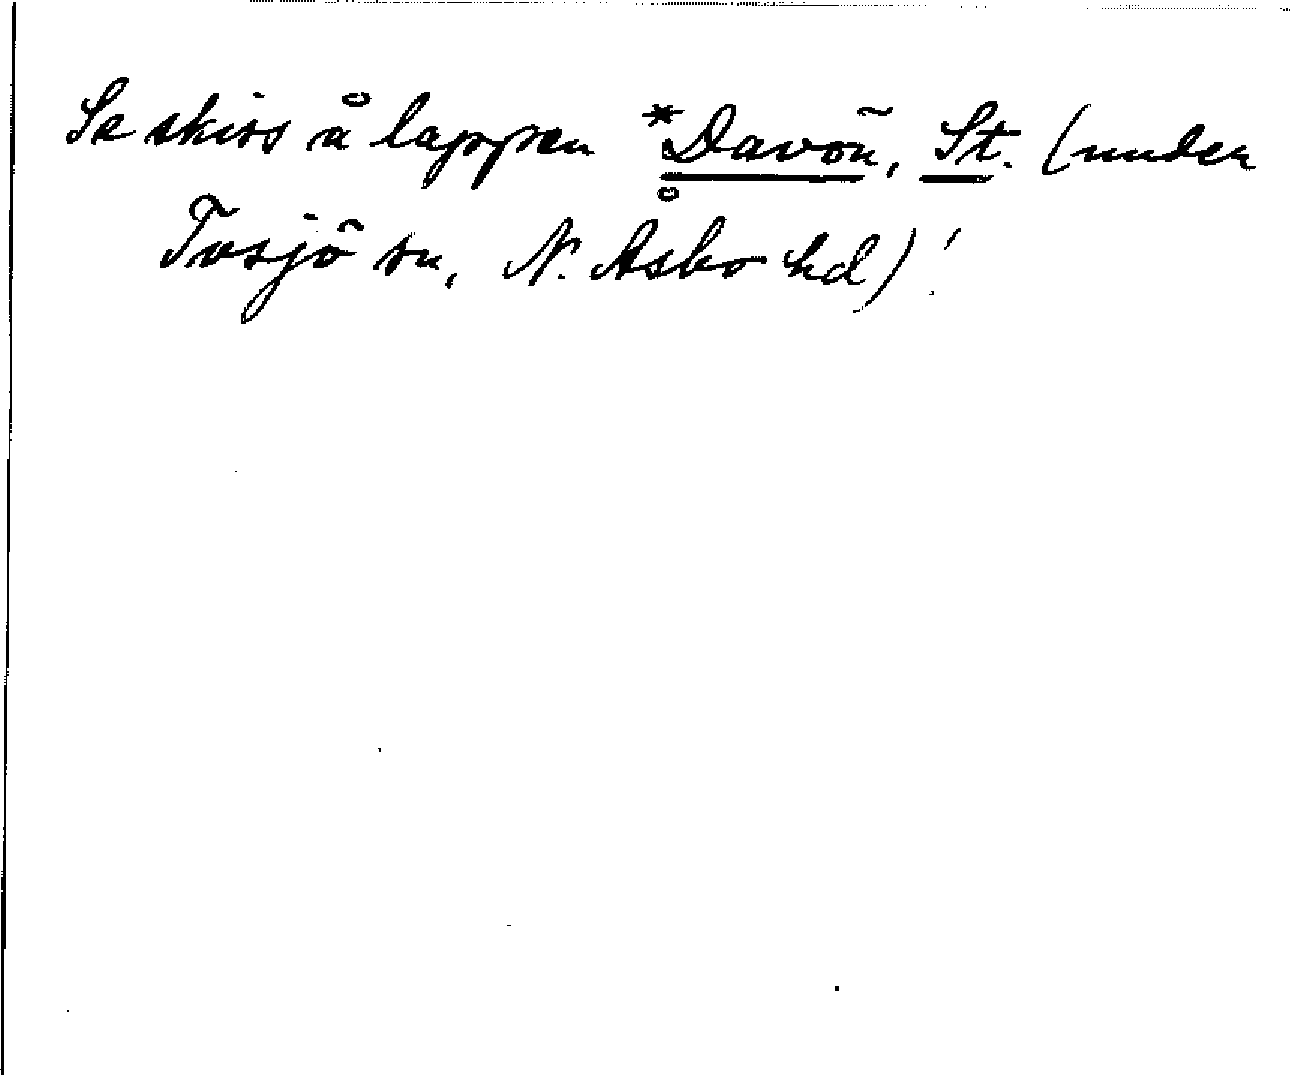 Se skiss å lappen *Davön, St. (under
Tosjö sn, N. Åsbo hd)!